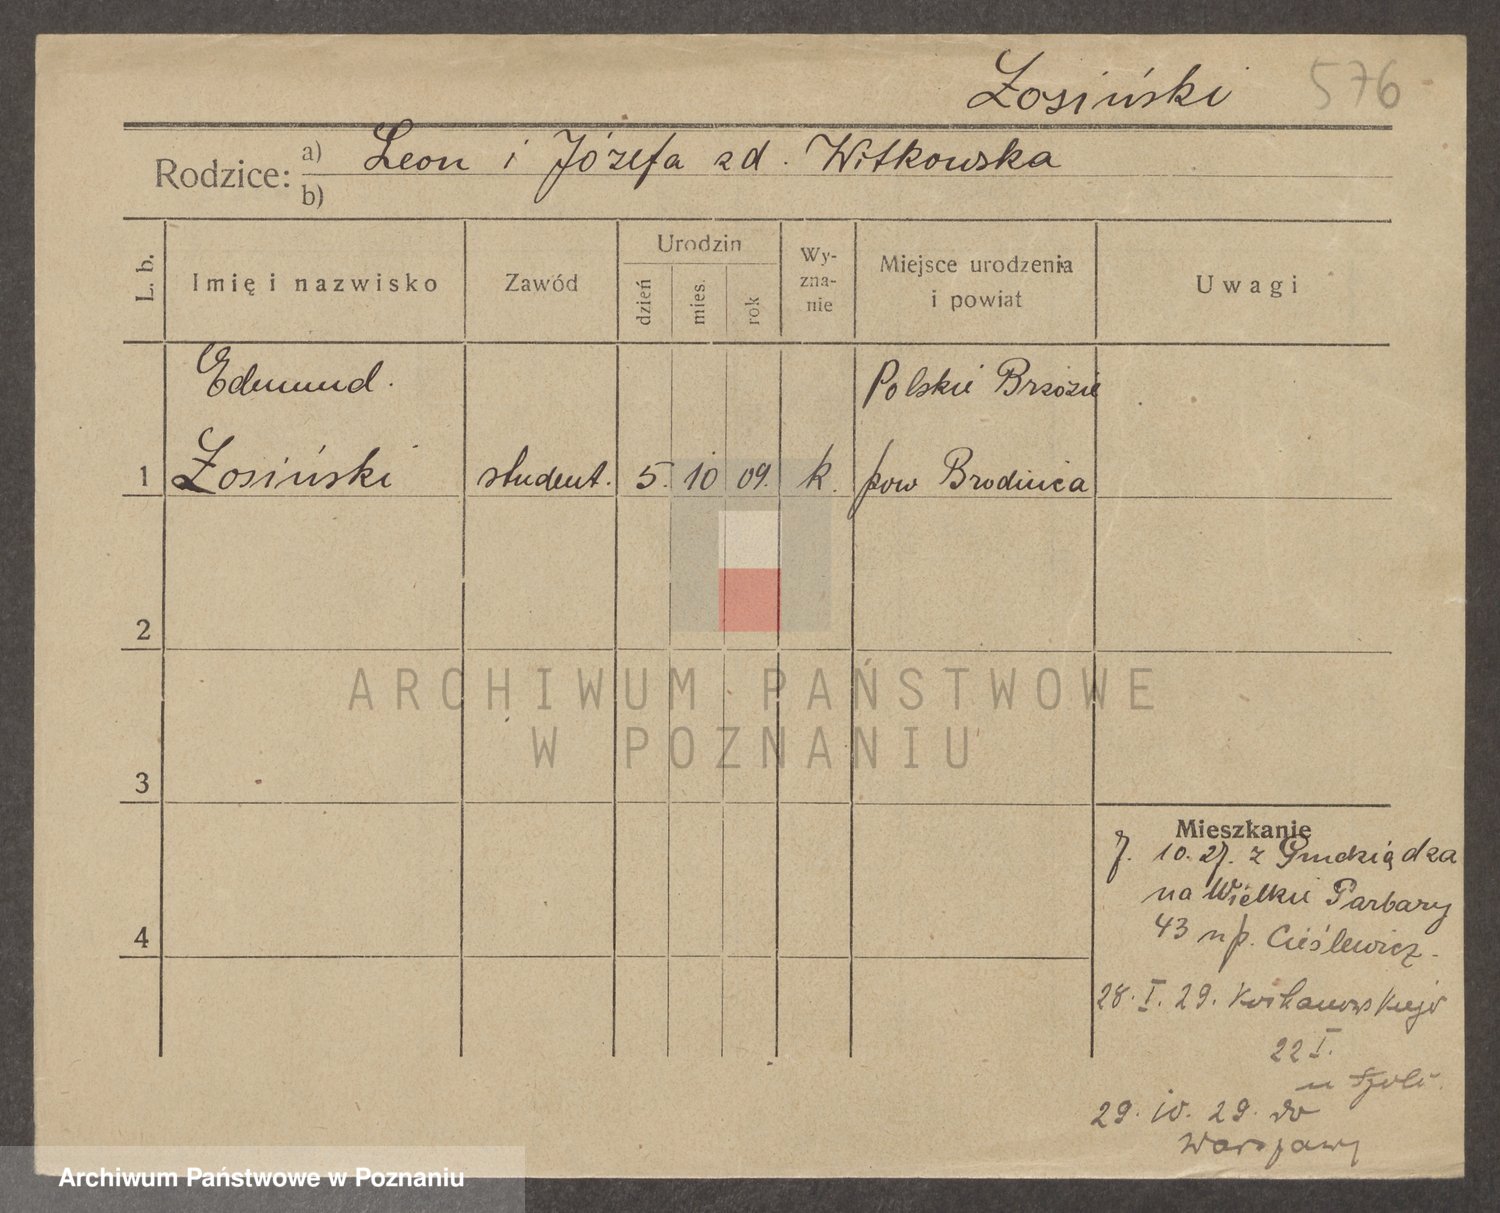 Łosiński 576
Rodzice: a) Leon i Józefa zd. Witkowska
b)
L. b.
Imię i nazwisko
Zawód
Urodzin
dzień
mies.
rok
Wy-
zna-
nie
Miejsce urodzenia
i powiat
Uwagi
Edmund. Polskie Brzozie
1 Łosiński student. 5. 10 09. k. pow Brodnica
2
3
4
Mieszkanie
7. 10. 27. z Grudziądza
na Wielkie Garbary
43 u p. Cieślewicz.
28. I. 29. Kochanowskiego
22 I.
u
29. 10. 29. do
Warszawy
ARCHIWUM PAŃSTWOWE
W POZNANIU
Archiwum Państwowe w Poznaniu